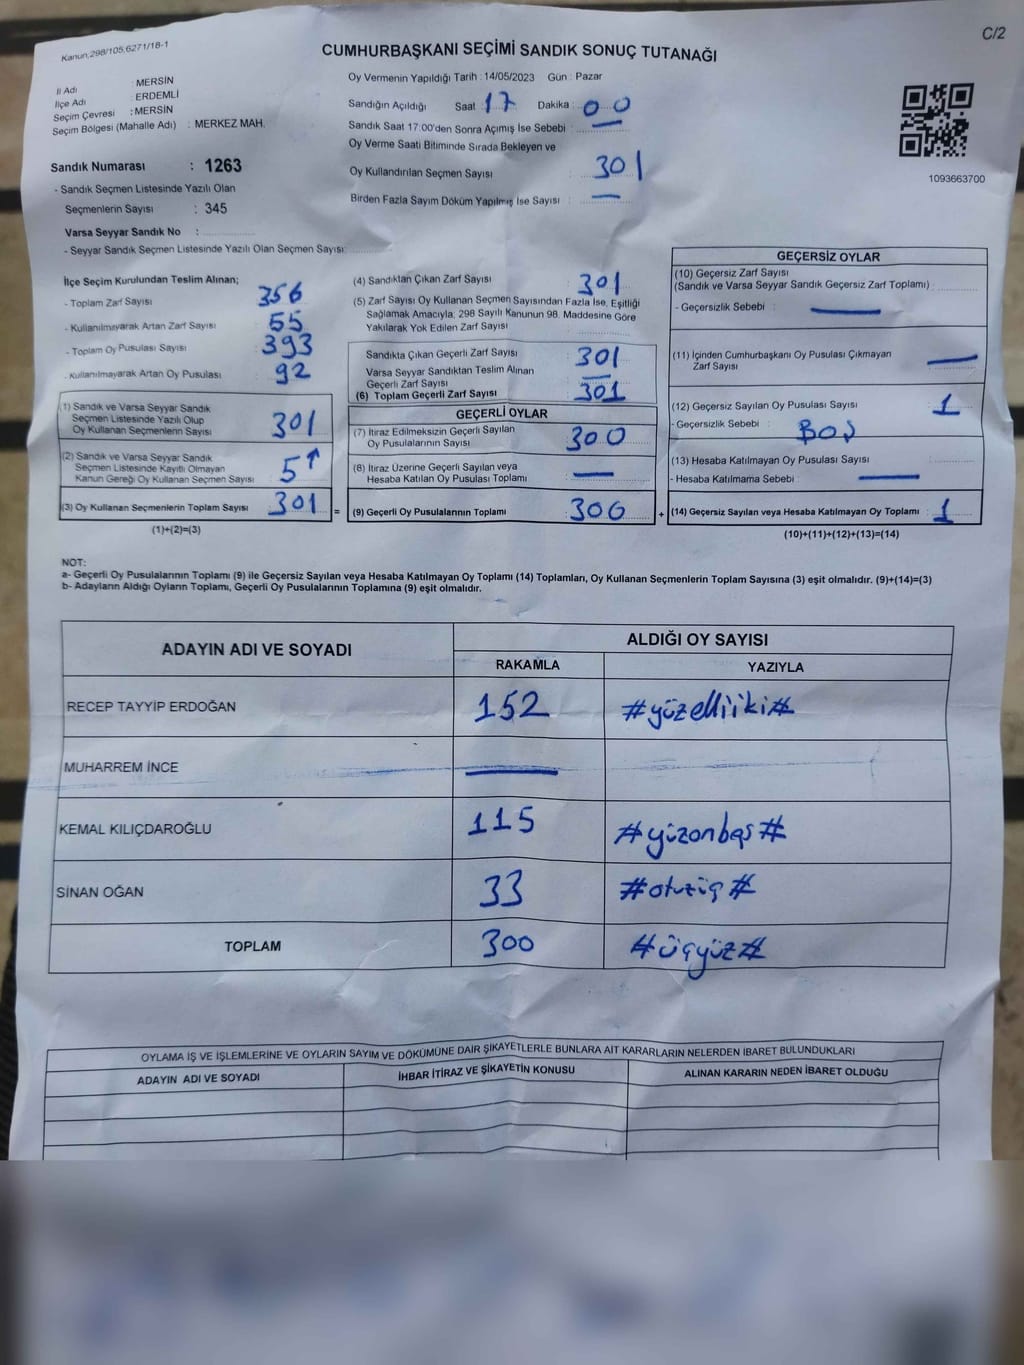 Kanun;298/105,6271/18-1
C/2
CUMHURBAŞKANI SEÇİMİ SANDIK SONUÇ TUTANAĞI
İl Adı : MERSİN
İlçe Adı : ERDEMLİ
Seçim Çevresi : MERSİN
Seçim Bölgesi (Mahalle Adı) : MERKEZ MAH.
Sandık Numarası : 1263
- Sandık Seçmen Listesinde Yazılı Olan
Seçmenlerin Sayısı : 345
Varsa Seyyar Sandık No :
- Seyyar Sandık Seçmen Listesinde Yazılı Olan Seçmen Sayısı:
Oy Vermenin Yapıldığı Tarih : 14/05/2023 Gün : Pazar
Sandığın Açıldığı Saat : 17 Dakika : 00
Sandık Saat 17:00'den Sonra Açımış İse Sebebi : —
Oy Verme Saati Bitiminde Sırada Bekleyen ve
Oy Kullandırılan Seçmen Sayısı : 301
Birden Fazla Sayım Döküm Yapılmış İse Sayısı : —
1093663700
İlçe Seçim Kurulundan Teslim Alınan;
- Toplam Zarf Sayısı : 356
- Kullanılmayarak Artan Zarf Sayısı : 55
- Toplam Oy Pusulası Sayısı : 393
- Kullanılmayarak Artan Oy Pusulası : 92
(1) Sandık ve Varsa Seyyar Sandık
Seçmen Listesinde Yazılı Olup
Oy Kullanan Seçmenlerin Sayısı : 301
(2) Sandık ve Varsa Seyyar Sandık
Seçmen Listesinde Kayıtlı Olmayan
Kanun Gereği Oy Kullanan Seçmen Sayısı : 5
(3) Oy Kullanan Seçmenlerin Toplam Sayısı : 301 =
(1)+(2)=(3)
(4) Sandıktan Çıkan Zarf Sayısı : 301
(5) Zarf Sayısı Oy Kullanan Seçmen Sayısından Fazla İse, Eşitliği
Sağlamak Amacıyla; 298 Sayılı Kanunun 98. Maddesine Göre
Yakılarak Yok Edilen Zarf Sayısı :
Sandıkta Çıkan Geçerli Zarf Sayısı : 301
Varsa Seyyar Sandıktan Teslim Alınan
Geçerli Zarf Sayısı : —
(6) Toplam Geçerli Zarf Sayısı : 301
GEÇERLİ OYLAR
(7) İtiraz Edilmeksizin Geçerli Sayılan
Oy Pusulalarının Sayısı : 300
(8) İtiraz Üzerine Geçerli Sayılan veya
Hesaba Katılan Oy Pusulası Toplamı : —
(9) Geçerli Oy Pusulalarının Toplamı : 300 +
GEÇERSİZ OYLAR
(10) Geçersiz Zarf Sayısı
(Sandık ve Varsa Seyyar Sandık Geçersiz Zarf Toplamı) :
- Geçersizlik Sebebi : —
(11) İçinden Cumhurbaşkanı Oy Pusulası Çıkmayan
Zarf Sayısı : —
(12) Geçersiz Sayılan Oy Pusulası Sayısı : 1
- Geçersizlik Sebebi : BOŞ
(13) Hesaba Katılmayan Oy Pusulası Sayısı :
- Hesaba Katılmama Sebebi : —
(14) Geçersiz Sayılan veya Hesaba Katılmayan Oy Toplamı : 1
(10)+(11)+(12)+(13)=(14)
NOT:
a- Geçerli Oy Pusulalarının Toplamı (9) ile Geçersiz Sayılan veya Hesaba Katılmayan Oy Toplamı (14) Toplamları, Oy Kullanan Seçmenlerin Toplam Sayısına (3) eşit olmalıdır. (9)+(14)=(3)
b- Adayların Aldığı Oyların Toplamı, Geçerli Oy Pusulalarının Toplamına (9) eşit olmalıdır.
ADAYIN ADI VE SOYADI
ALDIĞI OY SAYISI
RAKAMLA YAZIYLA
RECEP TAYYİP ERDOĞAN 152 #yüzelliiki#
MUHARREM İNCE —
KEMAL KILIÇDAROĞLU 115 #yüzonbeş#
SİNAN OĞAN 33 #otuzüç#
TOPLAM 300 #üçyüz#
OYLAMA İŞ VE İŞLEMLERİNE VE OYLARIN SAYIM VE DÖKÜMÜNE DAİR ŞİKAYETLERLE BUNLARA AİT KARARLARIN NELERDEN İBARET BULUNDUKLARI
ADAYIN ADI VE SOYADI İHBAR İTİRAZ VE ŞİKAYETİN KONUSU ALINAN KARARIN NEDEN İBARET OLDUĞU